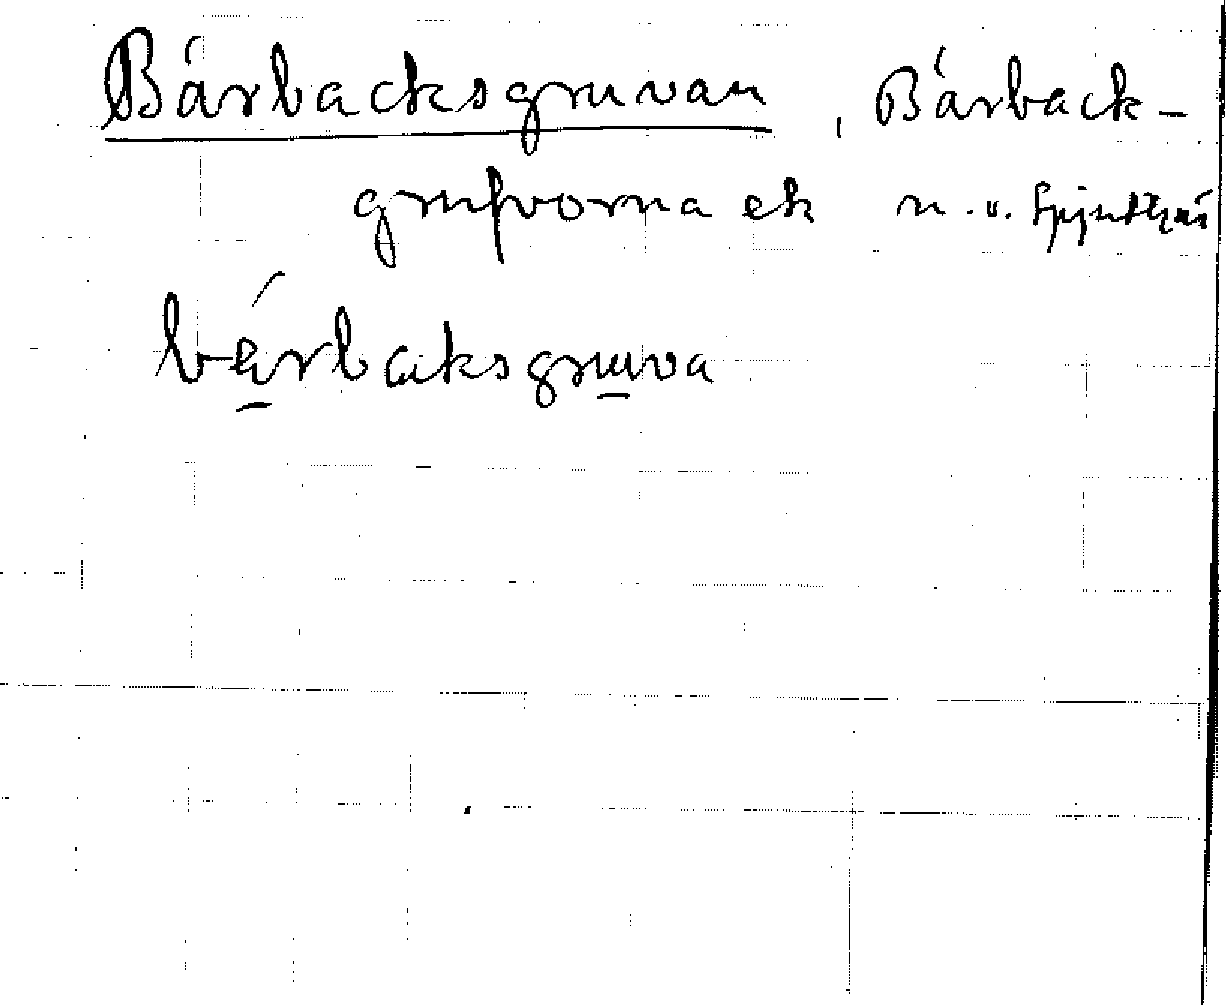 Bárbacksgruvan, Bárback-
grufvorna ek n.v.
bárbaksgruva